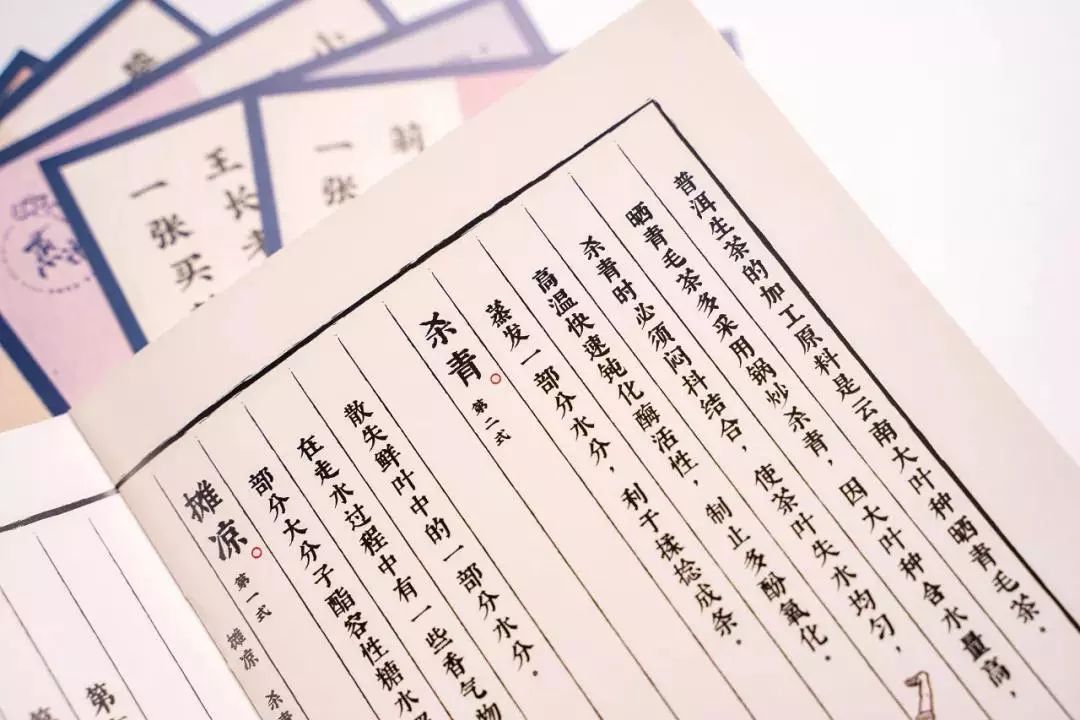 普洱生茶的加工原料是云南大叶种晒青毛茶.
晒青毛茶多采用锅炒杀青，因大叶种含水量高，
杀青时必须闷抖结合，使茶叶失水均匀，
高温快速钝化酶活性，制止多酚氧化.
蒸发一部分水分，利于揉捻成条.
杀青。第二式
散失鲜叶中的一部分水分.
在走水过程中有一些香气物
部分大分子酯容性糖水
摊凉。第一式 摊凉 杀青
第
第
一张
王长
一张买